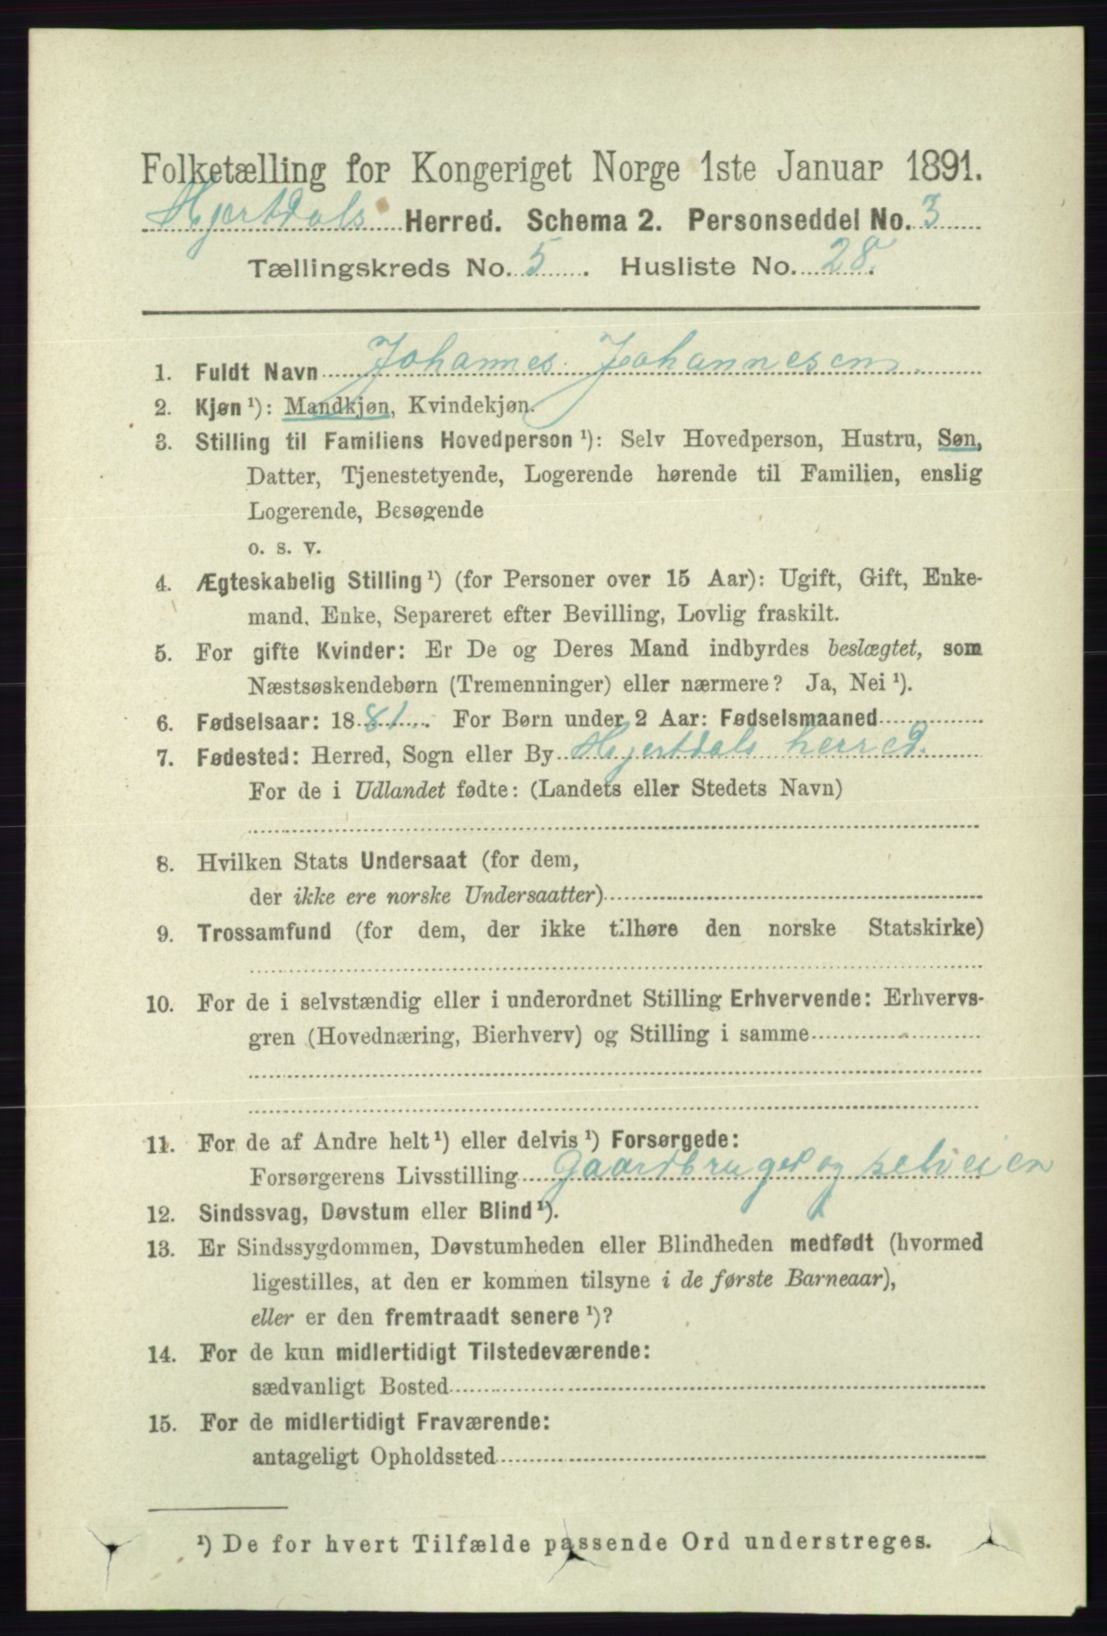 Folketælling for Kongeriget Norge 1ste Januar 1891.
Hjertdals Herred. Schema 2. Personseddel No. 3
Tællingskreds No. 5. Husliste No. 28.
1. Fuldt Navn Johannes Johannesen.
2. Kjøn ¹): Mandkjøn, Kvindekjøn.
3. Stilling til Familiens Hovedperson ¹): Selv Hovedperson, Hustru, Søn,
Datter, Tjenestetyende, Logerende hørende til Familien, enslig
Logerende, Besøgende
o. s. v.
4. Ægteskabelig Stilling ¹) (for Personer over 15 Aar): Ugift, Gift, Enke-
mand, Enke, Separeret efter Bevilling, Lovlig fraskilt.
5. For gifte Kvinder: Er De og Deres Mand indbyrdes beslægtet, som
Næstsøskendebørn (Tremenninger) eller nærmere? Ja, Nei ¹).
6. Fødselsaar: 1881. For Børn under 2 Aar: Fødselsmaaned
7. Fødested: Herred, Sogn eller By Hjertdals herred.
For de i Udlandet fødte: (Landets eller Stedets Navn)
8. Hvilken Stats Undersaat (for dem,
der ikke ere norske Undersaatter)
9. Trossamfund (for dem, der ikke tilhøre den norske Statskirke)
10. For de i selvstændig eller i underordnet Stilling Erhvervende: Erhvervs-
gren (Hovednæring, Bierhverv) og Stilling i samme
11. For de af Andre helt ¹) eller delvis ¹) Forsørgede:
Forsørgerens Livsstilling Gaardbruger og selveien
12. Sindssvag, Døvstum eller Blind ¹).
13. Er Sindssygdommen, Døvstumheden eller Blindheden medfødt (hvormed
ligestilles, at den er kommen tilsyne i de første Barneaar),
eller er den fremtraadt senere ¹)?
14. For de kun midlertidigt Tilstedeværende:
sædvanligt Bosted
15. For de midlertidigt Fraværende:
antageligt Opholdssted
¹) De for hvert Tilfælde passende Ord understreges.